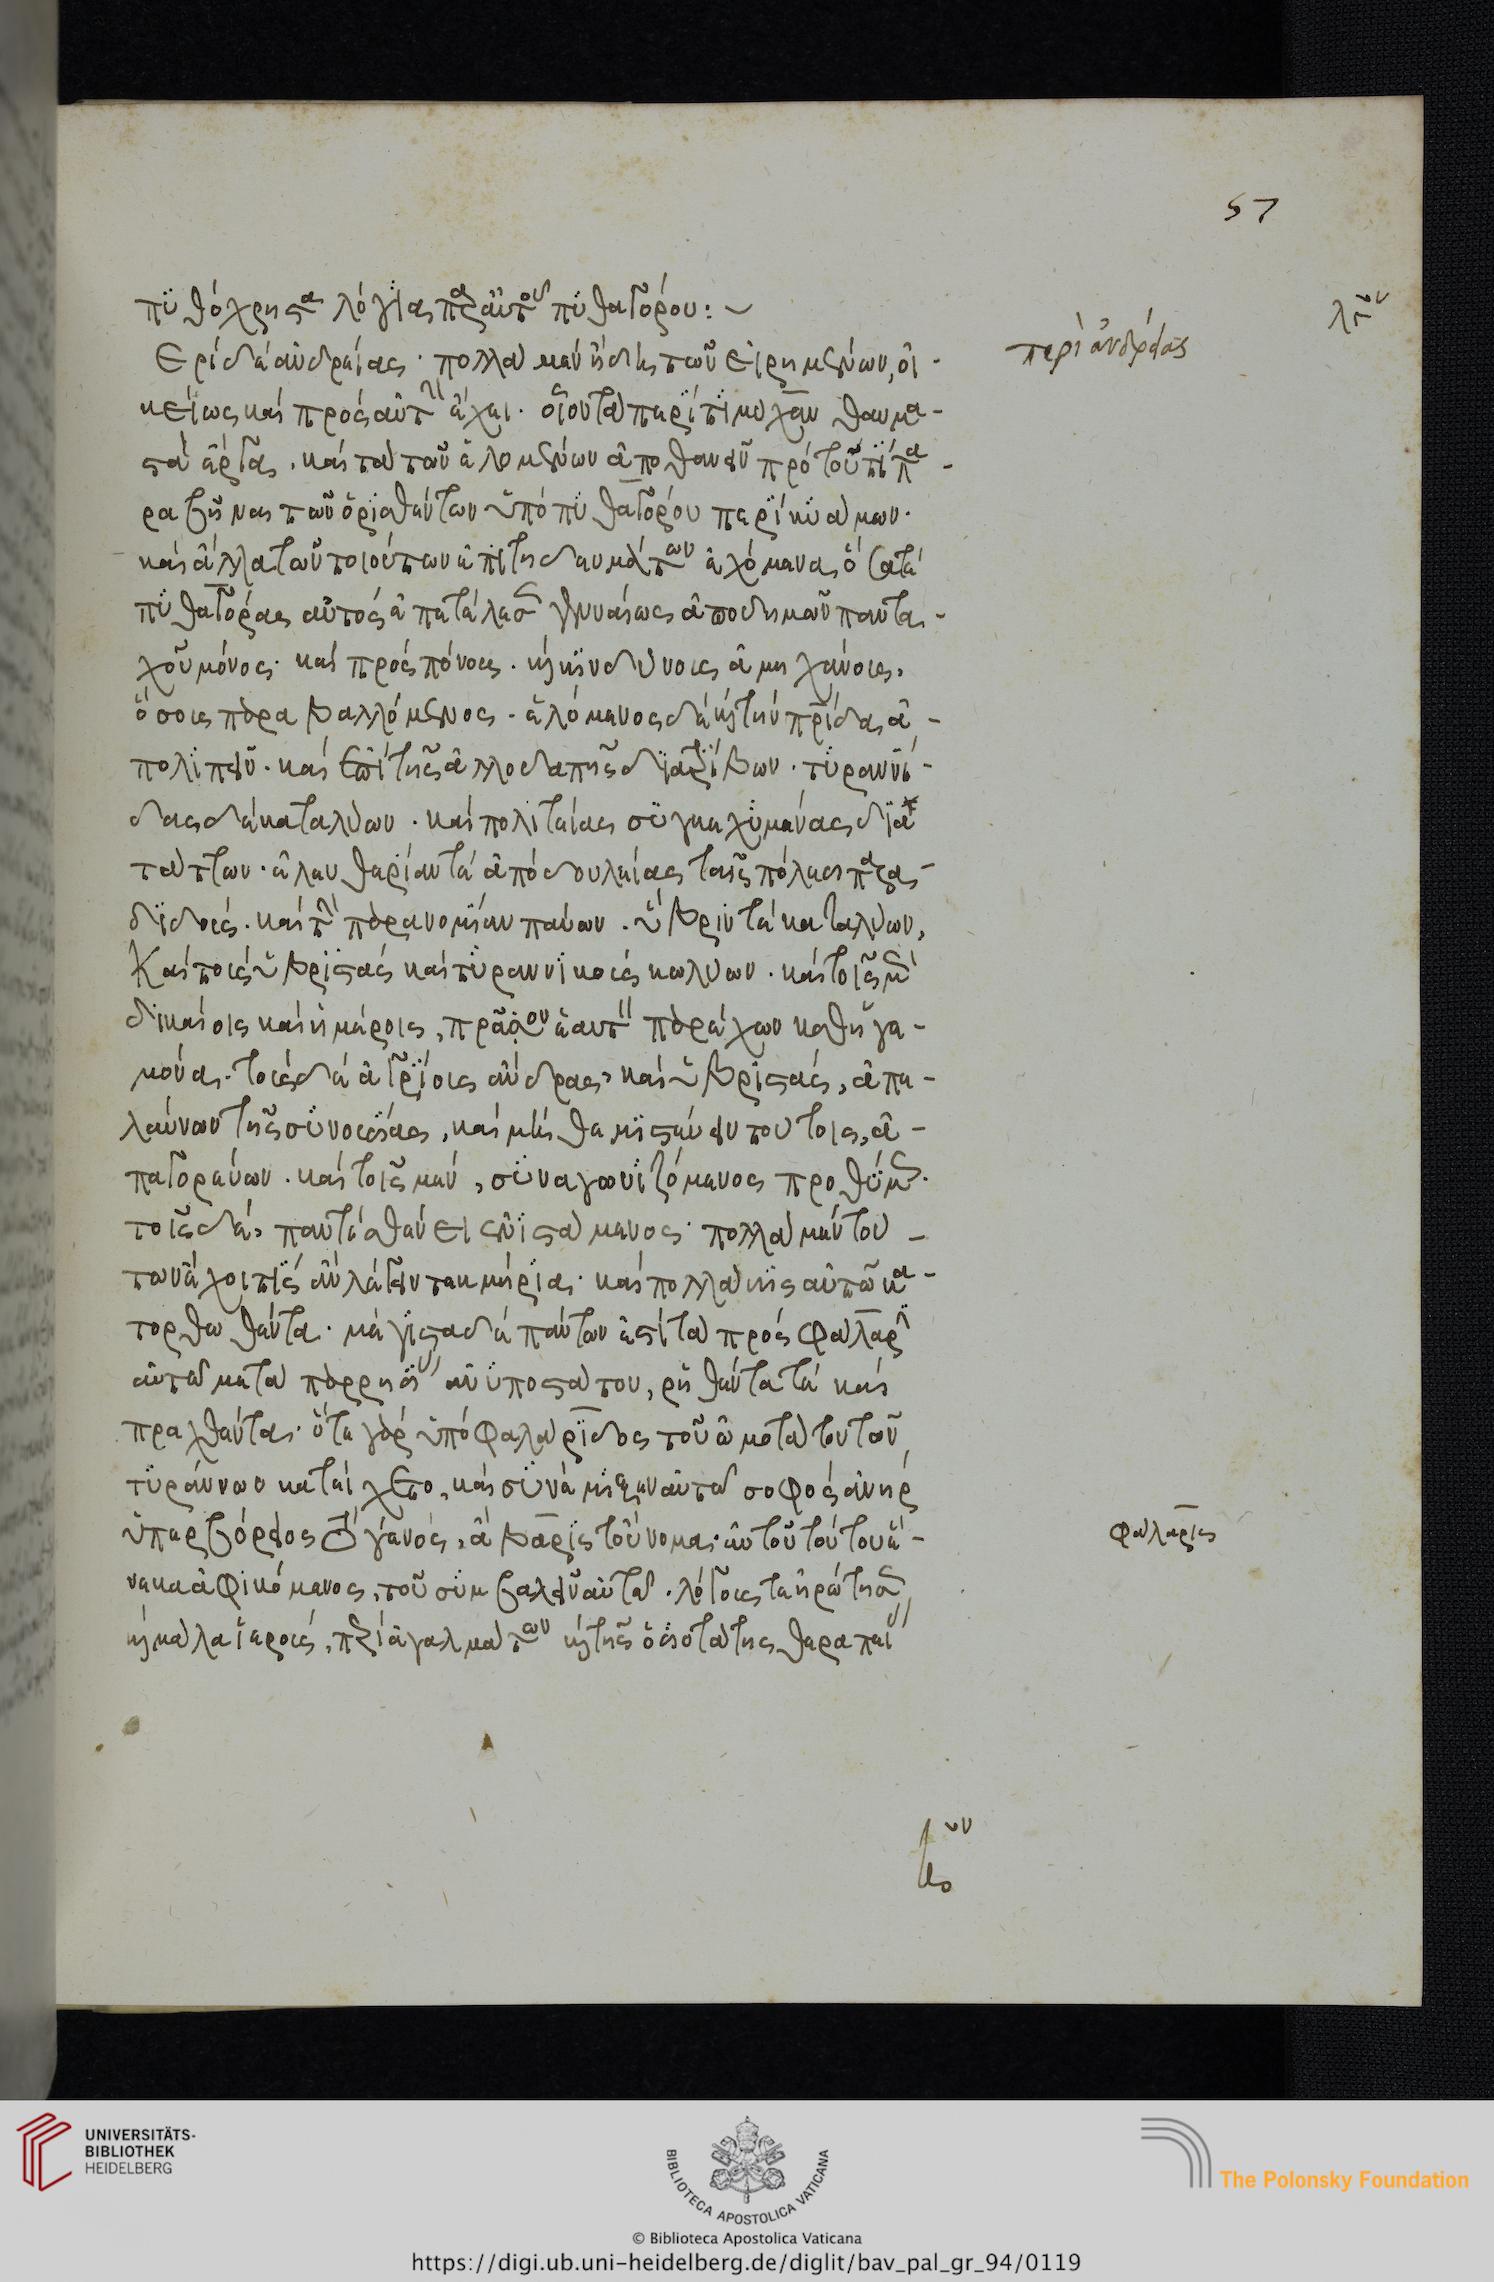 57
πυθόχρηστα λόγια παρ' αὐτοῦ πυθαγόρου:~
ερὶ δὲ ἀνδρείας· πολλὰ μὲν ἤδη τῶν εἰρημένων, οἰ-
κείως καὶ πρὸς αὐτὴν ἔχει· οἷον τὰ περὶ τιμύχαν θαυμα-
στὰ ἔργα. καὶ τὰ τῶν ἑλομένων ἀποθανεῖν πρὸ τοῦ τι πα-
ραβῆναι τῶν ὁρισθέντων ὑπὸ πυθαγόρου περὶ κυάμων·
καὶ ἄλλα τῶν τοιούτων ἐπιτηδευμάτων ἐχόμενα, ὅσα τε
πυθαγόρας αὐτὸς ἐπετέλεσε γενναίως ἀποδημῶν παντα-
χοῦ μόνος· καὶ πρὸς πόνους· καὶ κινδύνους ἀμηχάνους,
ὅσους παραβαλλόμενος· ἑλόμενος δὲ καὶ τὴν πατρίδα ἀ-
πολιπεῖν· καὶ ἐπὶ τῆς ἀλλοδαπῆς διατρίβων· τυραννί-
δας δὲ καταλύων· καὶ πολιτείας συγκεχυμένας δια
τάττων· ἐλευθερίαν τὲ ἀπὸ δουλείας ταῖς πόλεσι παρα-
διδούς· καὶ τὴν παρανομίαν παύων· ὕβριν τὲ καταλύων,
Καὶ τοὺς ὑβριστὰς καὶ τυραννικοὺς κωλύων· καὶ τοῖς μὲν
δικαίοις καὶ ἡμέροις, πρᾶον ἑαυτὸν παρέχων καθηγε-
μόνα· τοὺς δὲ ἀγρίους ἄνδρας καὶ ὑβριστὰς, ἀπε-
λαύνων τῆς συνουσίας, καὶ μὴ θεμιστεύειν τούτοις, ἀ-
παγορεύων· καὶ τοῖς μὲν, συναγωνιζόμενος προθύμως·
τοῖς δὲ, παντὶ σθένει ἐνιστάμενος· πολλὰ μὲν τού-
των ἔχοι τὶς ἂν λέγειν τεκμήρια· καὶ πολλάκις αὐτῷ κα-
τορθωθέντα· μέγιστα δὲ πάντων ἐστὶ τὰ πρὸς φάλαριν
αὐτῷ μετὰ παρρησίας ἀνυποστάτου, ῥηθέντα τὲ καὶ
πραχθέντα· ὅτε γὰρ ὑπὸ φαλάριδος τοῦ ὠμοτάτου τῶν
τυράννων κατείχετο, καὶ συνέμιξεν αὐτῷ σοφὸς ἀνὴρ
ὑπερβόρεος τὸ γένος, ἄβαρις τοὔνομα· αὐτοῦ τούτου ἕ-
νεκα ἀφικόμενος, τοῦ συμβαλεῖν αὐτῷ· λόγους τε ἠρώτησε
καὶ μάλα ἱεροὺς, περὶ ἀγαλμάτων καὶ τῆς ὁσιοτάτης θεραπείας
περὶ ἀνδρείας
φάλαρις
UNIVERSITÄTS-
BIBLIOTHEK
HEIDELBERG
BIBLIOTECA APOSTOLICA VATICANA
© Biblioteca Apostolica Vaticana
The Polonsky Foundation
https://digi.ub.uni-heidelberg.de/diglit/bav_pal_gr_94/0119